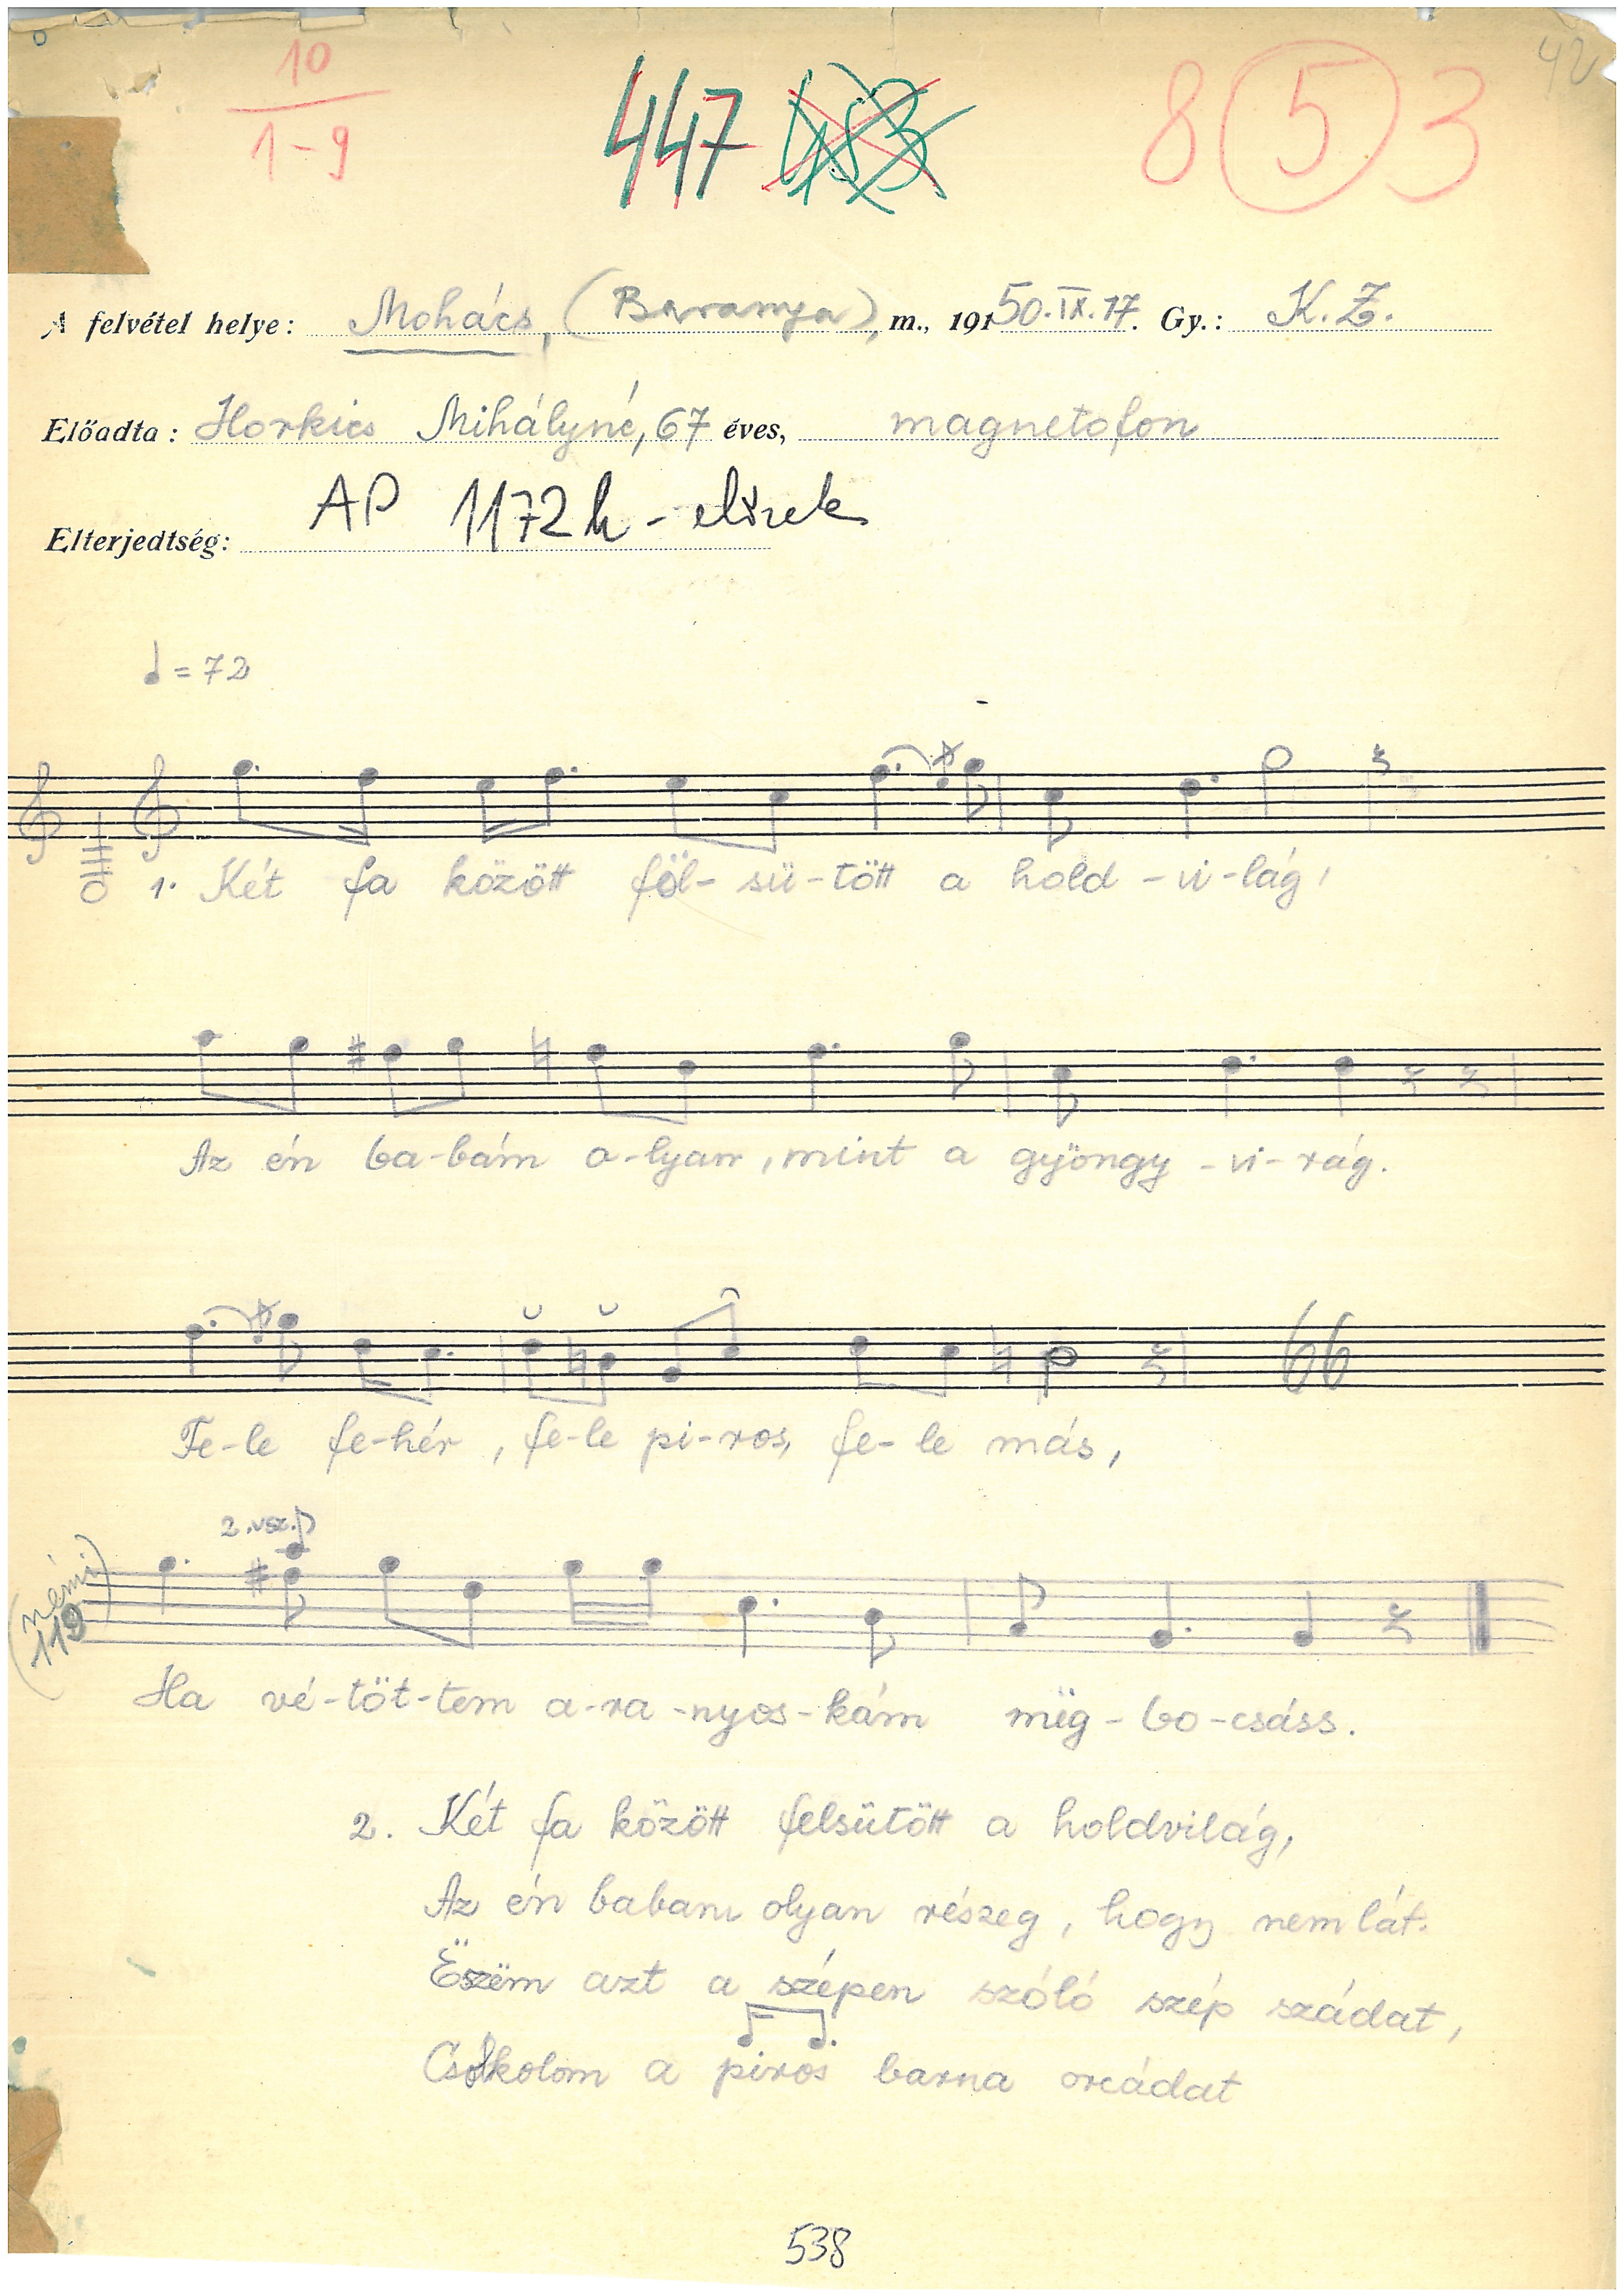 42
10
1-9
447 483
8 5 3
A felvétel helye: Mohács, (Baranya), m., 19150.IX.17. Gy.: K.Z.
Előadta: Horkics Mihályné, 67 éves, magnetofon
AP 1172h -
Elterjedtség:
= 72
1. Két fa között föl- sü-tött a hold-vi-lág,
Az én ba-bám o-lyan, mint a gyöngy-vi-rág.
66
Fe-le fe-hér, fe-le pi-ros, fe-le más,
2.vsz.
(némi)
119
Ha vé-töt-tem a-ra-nyos-kám mëg-bo-csáss.
2. Két fa között felsütött a holdvilág,
Az én babam olyan részeg, hogy nem lát.
Ëszëm azt a szépen szóló szép szádat,
Csókolom a piros barna orcádat
538